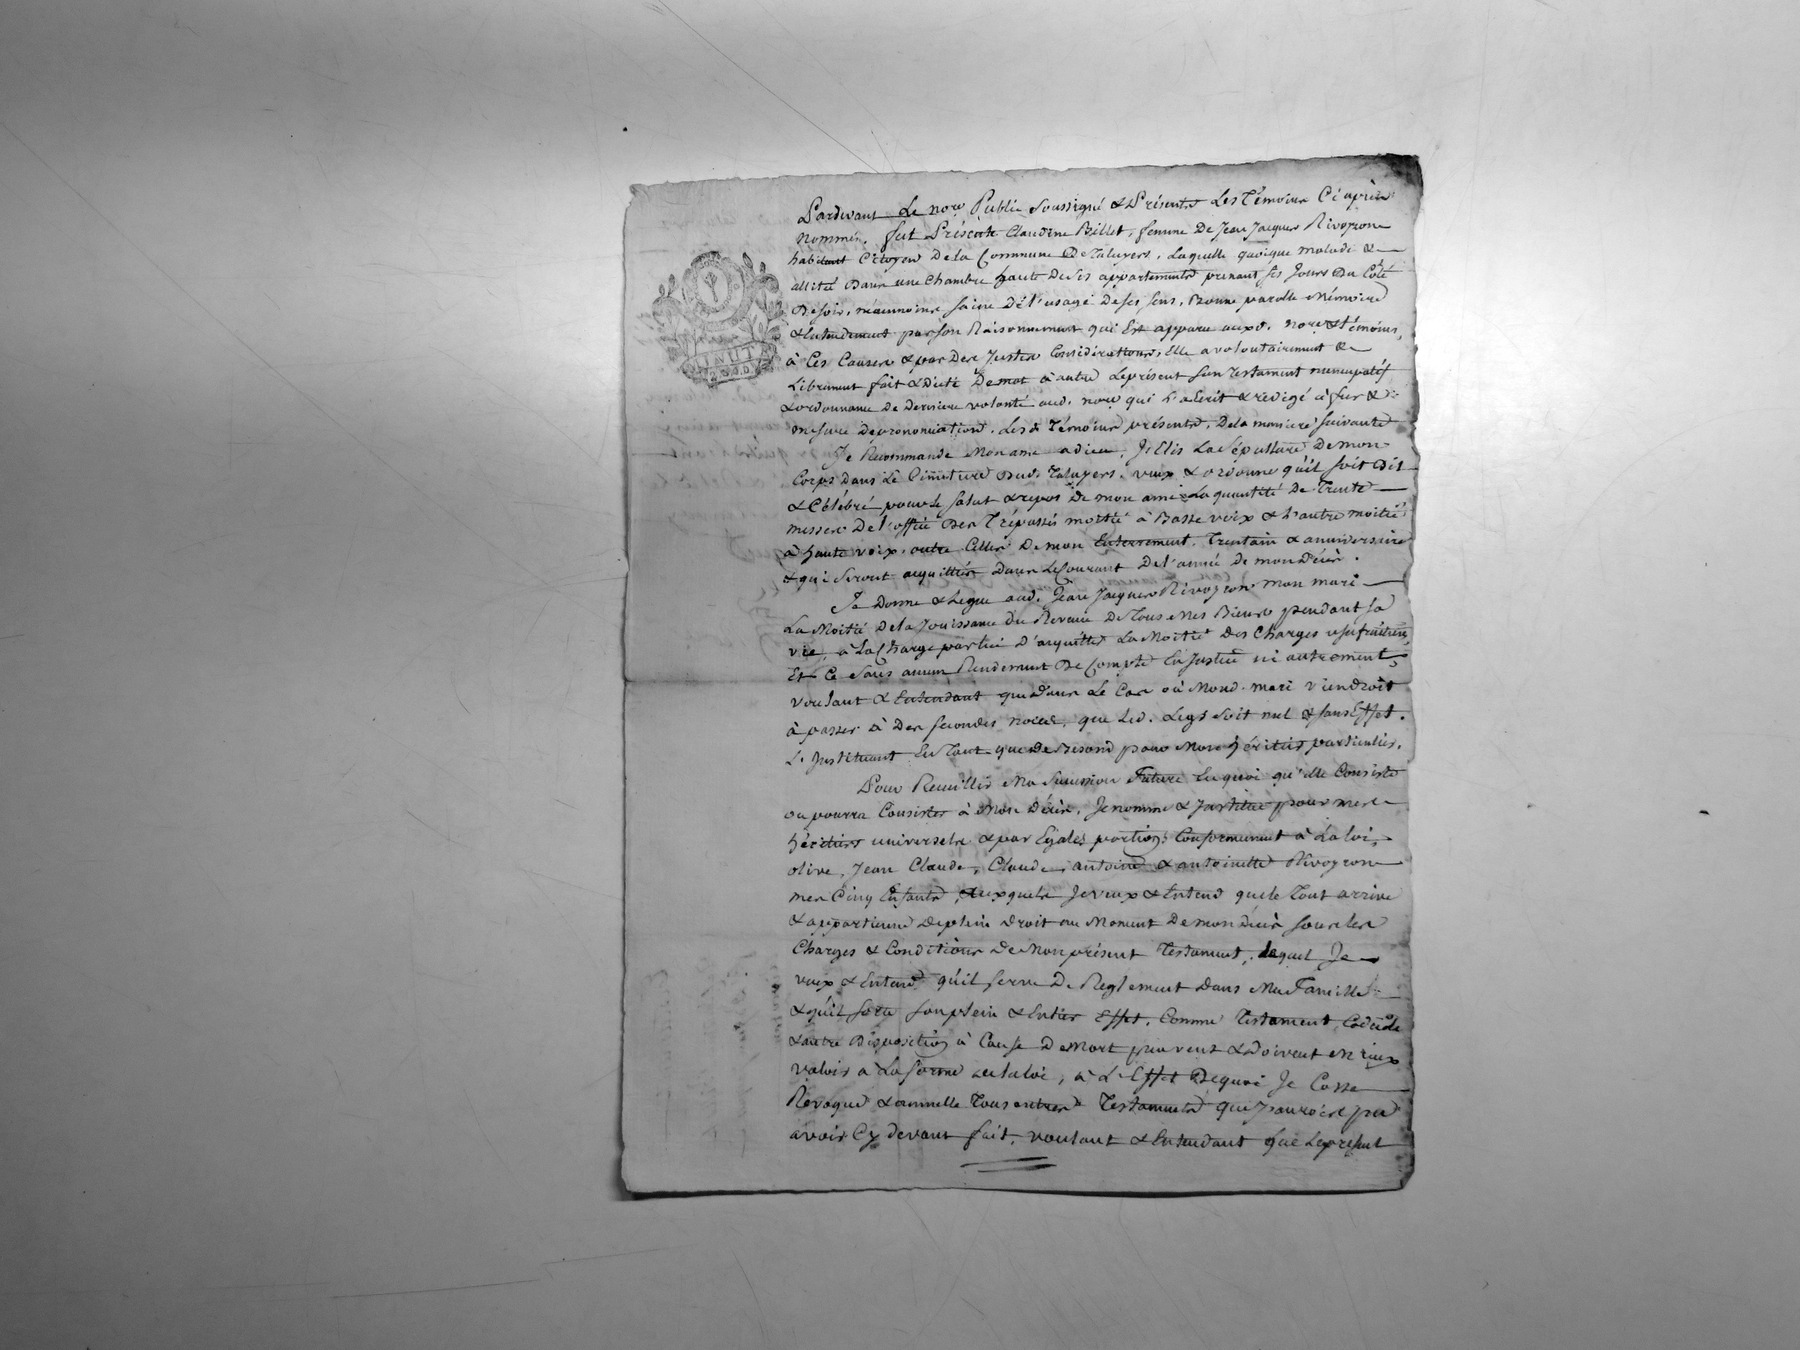 Pardevant Le nore Public Soussigné & Présents Les Témoins Ci après
nommés, fut Présente Claudine Billet, femme De Jean Jacques Rivoyron
habitant Citoyen De la Commune De Taluyers, Laquelle quoique malade &
allitée Dans une Chambre haute De Ses appartements prenant ses Jours Du Coté
De soir, néanmoins saine De l'usage De ses sens, Bonne parolle Mémoire
& Entendement par son Raisonnement qui Est apparu auxd. nore & témoins,
à Ces Causes & par Des Justes Considérations, Elle a volontairement &
Librement fait & Dicté De mot à autre Le présent son testament nuncupatif
& ordonnance De Derniere volonté aud. nore qui L'a écrit & rédigé à fur &
mesure De prononciation, Les d. Témoins présents, De la maniere suivante
Je Recommande Mon ame a dieu, J'Elis La Sépulture De mon
Corps Dans Le Cimetiere Dud. Taluyers, veux & ordonne qu'il soit Dit
& Célébré pour Le salut & repos De mon ame La quantité De Trente
messes De l'office Des Trépassés moitié à Basse voix & L'autre moitié
à haute voix, outre Celles De mon Enterrement, Trentain & anniversaire
& qui seront acquittées Dans Le Courant De l'année De mon Décès.
Je Donne & Legue aud. Jean Jacques Rivoyron mon mari
La Moitié De la Jouissance Du Revenu De Tous Mes Biens pendant sa
vie, à La Charge par lui D'acquitter La Moitié Des Charges usufruitieres,
Et Ce Sans aucun Rendement De Compte En Justice ni autrement,
voulant & Entendant que Dans Le Cas où Mond. mari viendroit
à passer à Des secondes noces, que Led. Legs soit nul & sans Effet.
L'Instituant En Tant que De Besoin pour Mon héritier particulier.
Pour Recueillir Ma Succession future En quoi qu'elle Consiste
ou pourra Consister à Mon Décès, Je nomme & Institue pour mes
héritiers universels & par Egales portions Conformément à La loi,
olive, Jean Claude, Claude, antoine & antoinette Rivoyron
mes Cinq Enfants, auxquels Je veux & Entend que le Tout arrive
& appartienne De plein Droit au Moment De mon Décès sous les
Charges & Conditions De Mon présent Testament, lequel Je
veux & Entend qu'il serve De Reglement Dans Ma Famille
& qu'il sorte son plein & Entier Effet, Comme Testament, Codicile
& autre Disposition à Cause De Mort peuvent & Doivent Mieux
valoir à La forme De la loi, à L'Effet De quoi Je Casse
Revoque & annulle Tous autres Testaments que J'aurois pu
avoir Cy devant fait, voulant & Entendant que Le present